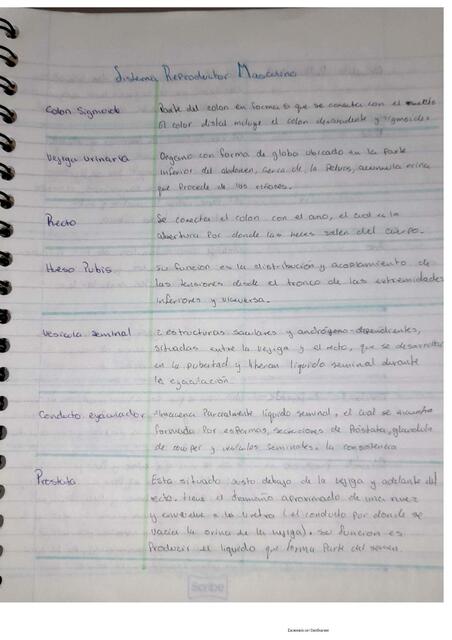 Sistema Reproductor Masculino
Colon Sigmoide
Parte del colon en forma S que se conecta con el recto
El colon distal incluye el colon descendente y sigmoides.
Vejiga urinaria
Organo con forma de globo ubicado en la parte
inferior del abdomen, cerca de la pelvis, acumula orina
que procede de los riñones.
Recto
Se conecta el colon con el ano, el cual es la
abertura por donde las heces salen del cuerpo.
Hueso Pubis
Su función es la distribución y acoplamiento de
las tensiones desde el tronco de las extremidades
inferiores y viceversa.
Vesícula seminal
2 estructuras saculares y andrógeno-dependientes,
situadas entre la vejiga y el recto, que se desarrollan
en la pubertad y liberan líquido seminal durante
la eyaculación
Conducto eyaculador
Almacena Parcialmente líquido seminal, el cual se encuentra
formado por espermas, secreciones de Próstata, glandula
de cowper y vesículas seminales. la consistencia
Prostata
Esta situado justo debajo de la vejiga y adelante del
recto. tiene el tamaño aproximado de una nuez
y envuelve a la uretra (el conducto por donde se
vacía la orina de la vejiga). su funcion es
Producir el líquido que forma Parte del semen.
Scribe
Escaneado con CamScanner